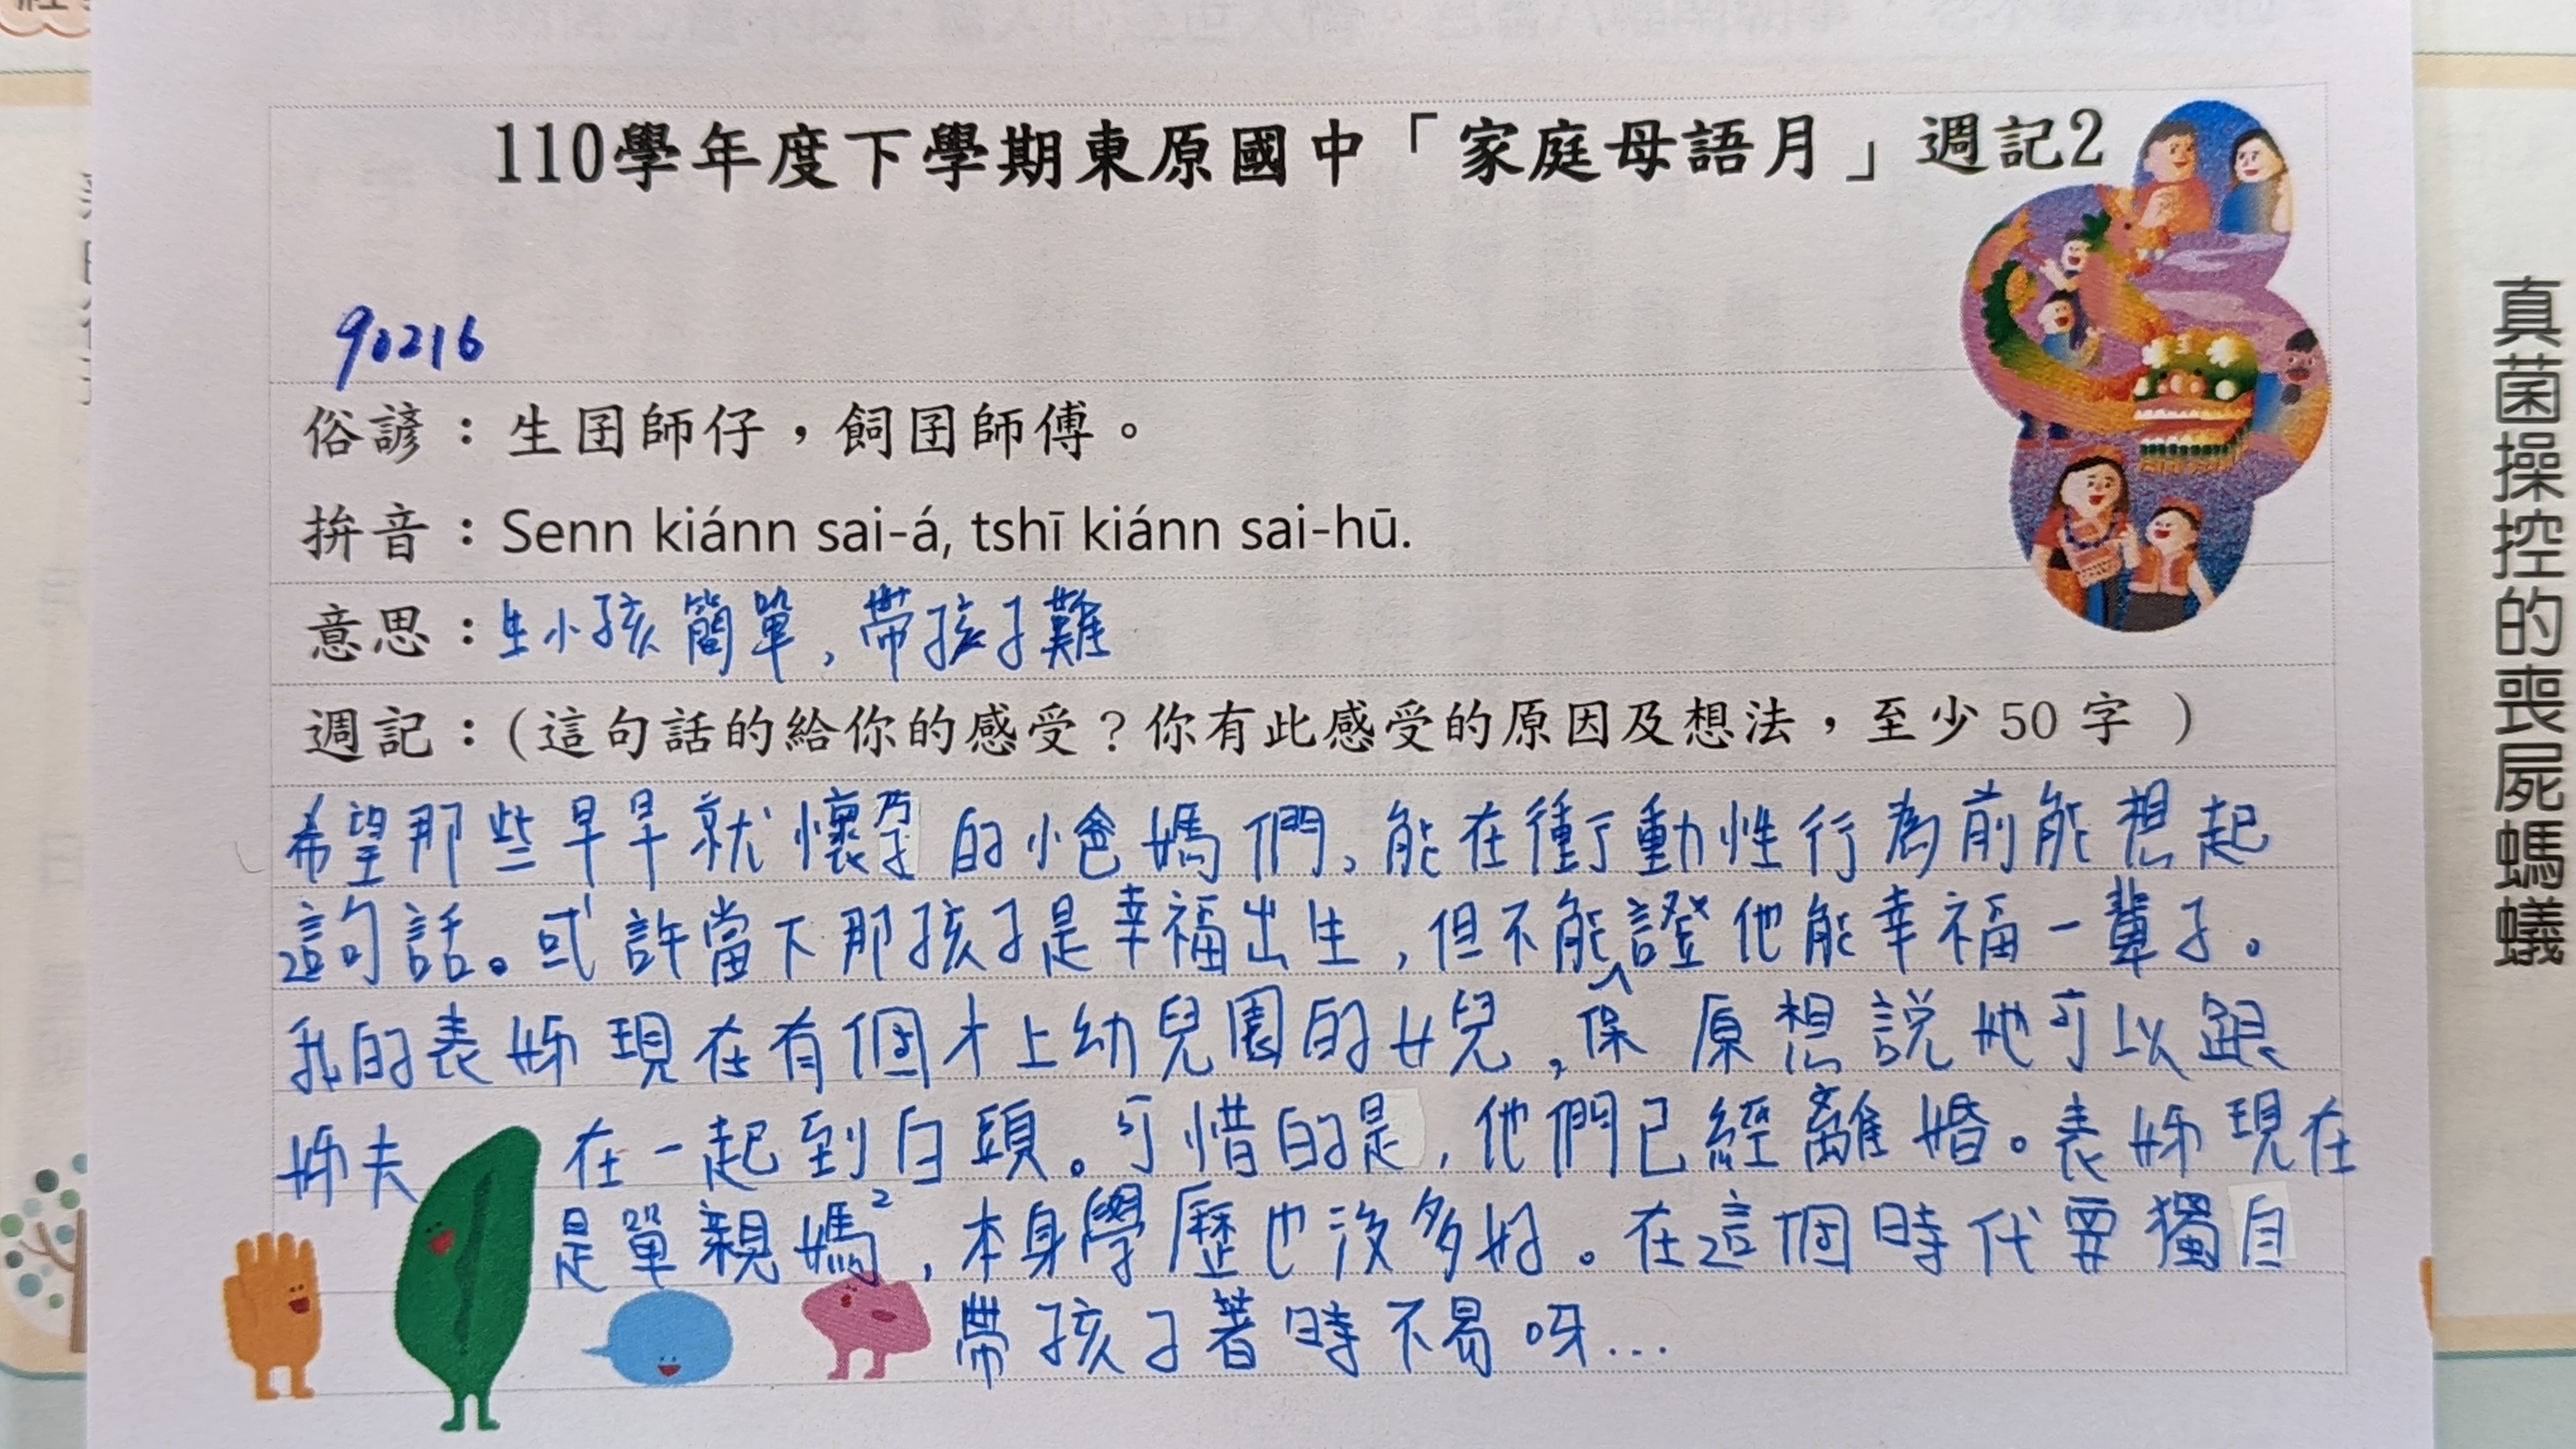 110學年度下學期東原國中「家庭母語月」週記2
90216
俗諺：生囝師仔，飼囝師傅。
拼音：Senn kiánn sai-á, tshī kiánn sai-hū.
意思：生小孩簡單，帶孩子難
週記：(這句話的給你的感受？你有此感受的原因及想法，至少50字 )
希望那些早早就懷孕的小爸媽們，能在衝動性行為前能想起
這句話。或許當下那孩子是幸福出生，但不能保證他能幸福一輩子。
我的表姊現在有個才上幼兒園的女兒，原想說她可以跟
姊夫在一起到白頭。可惜的是，他們已經離婚。表姊現在
是單親媽2，本身學歷也沒多好。在這個時代要獨自
帶孩子著時不易呀...
真菌操控的喪屍螞蟻